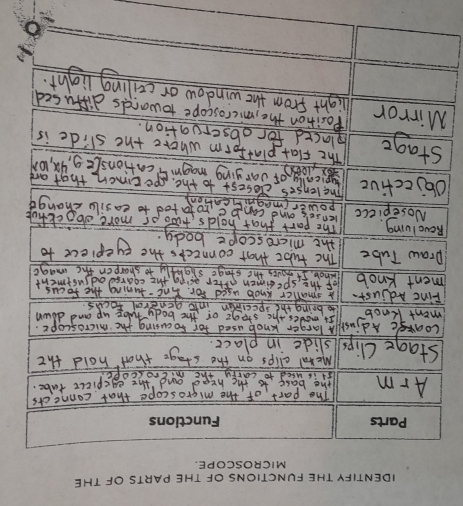 IDENTIFY THE FUNCTIONS OF THE PARTS OF THE
MICROSCOPE.
Parts
Functions
Arm
The part of the microscope that connects
the base to the head and the eyepiece tube.
It is used to carry the microscope.
Stage Clips
Metal clips on the stage that hold the
slide in place.
Coarse Adjust
ment Knob
A larger knob used for focusing the microscope.
It moves the stage or the body tube up and down
to bring the specimen into general focus.
Fine Adjust-
ment Knob
A smaller knob used for fine-tuning the focus
of the specimen after using the coarse adjustment
knob. It moves the stage slightly to sharpen the image
Draw Tube
The tube that connects the eyepiece to
the microscope body.
Revolving
Nosepiece
The part that holds two or more objective
lenses and can be rotated to easily change
power (magnification)
Objective
The lenses closest to the specimen that are
typically of varying magnifications (e.g. 4x, 10x
Stage
The flat platform where the slide is
placed for observation.
Mirror
Position the microscope towards diffused
light from the window or ceiling light.